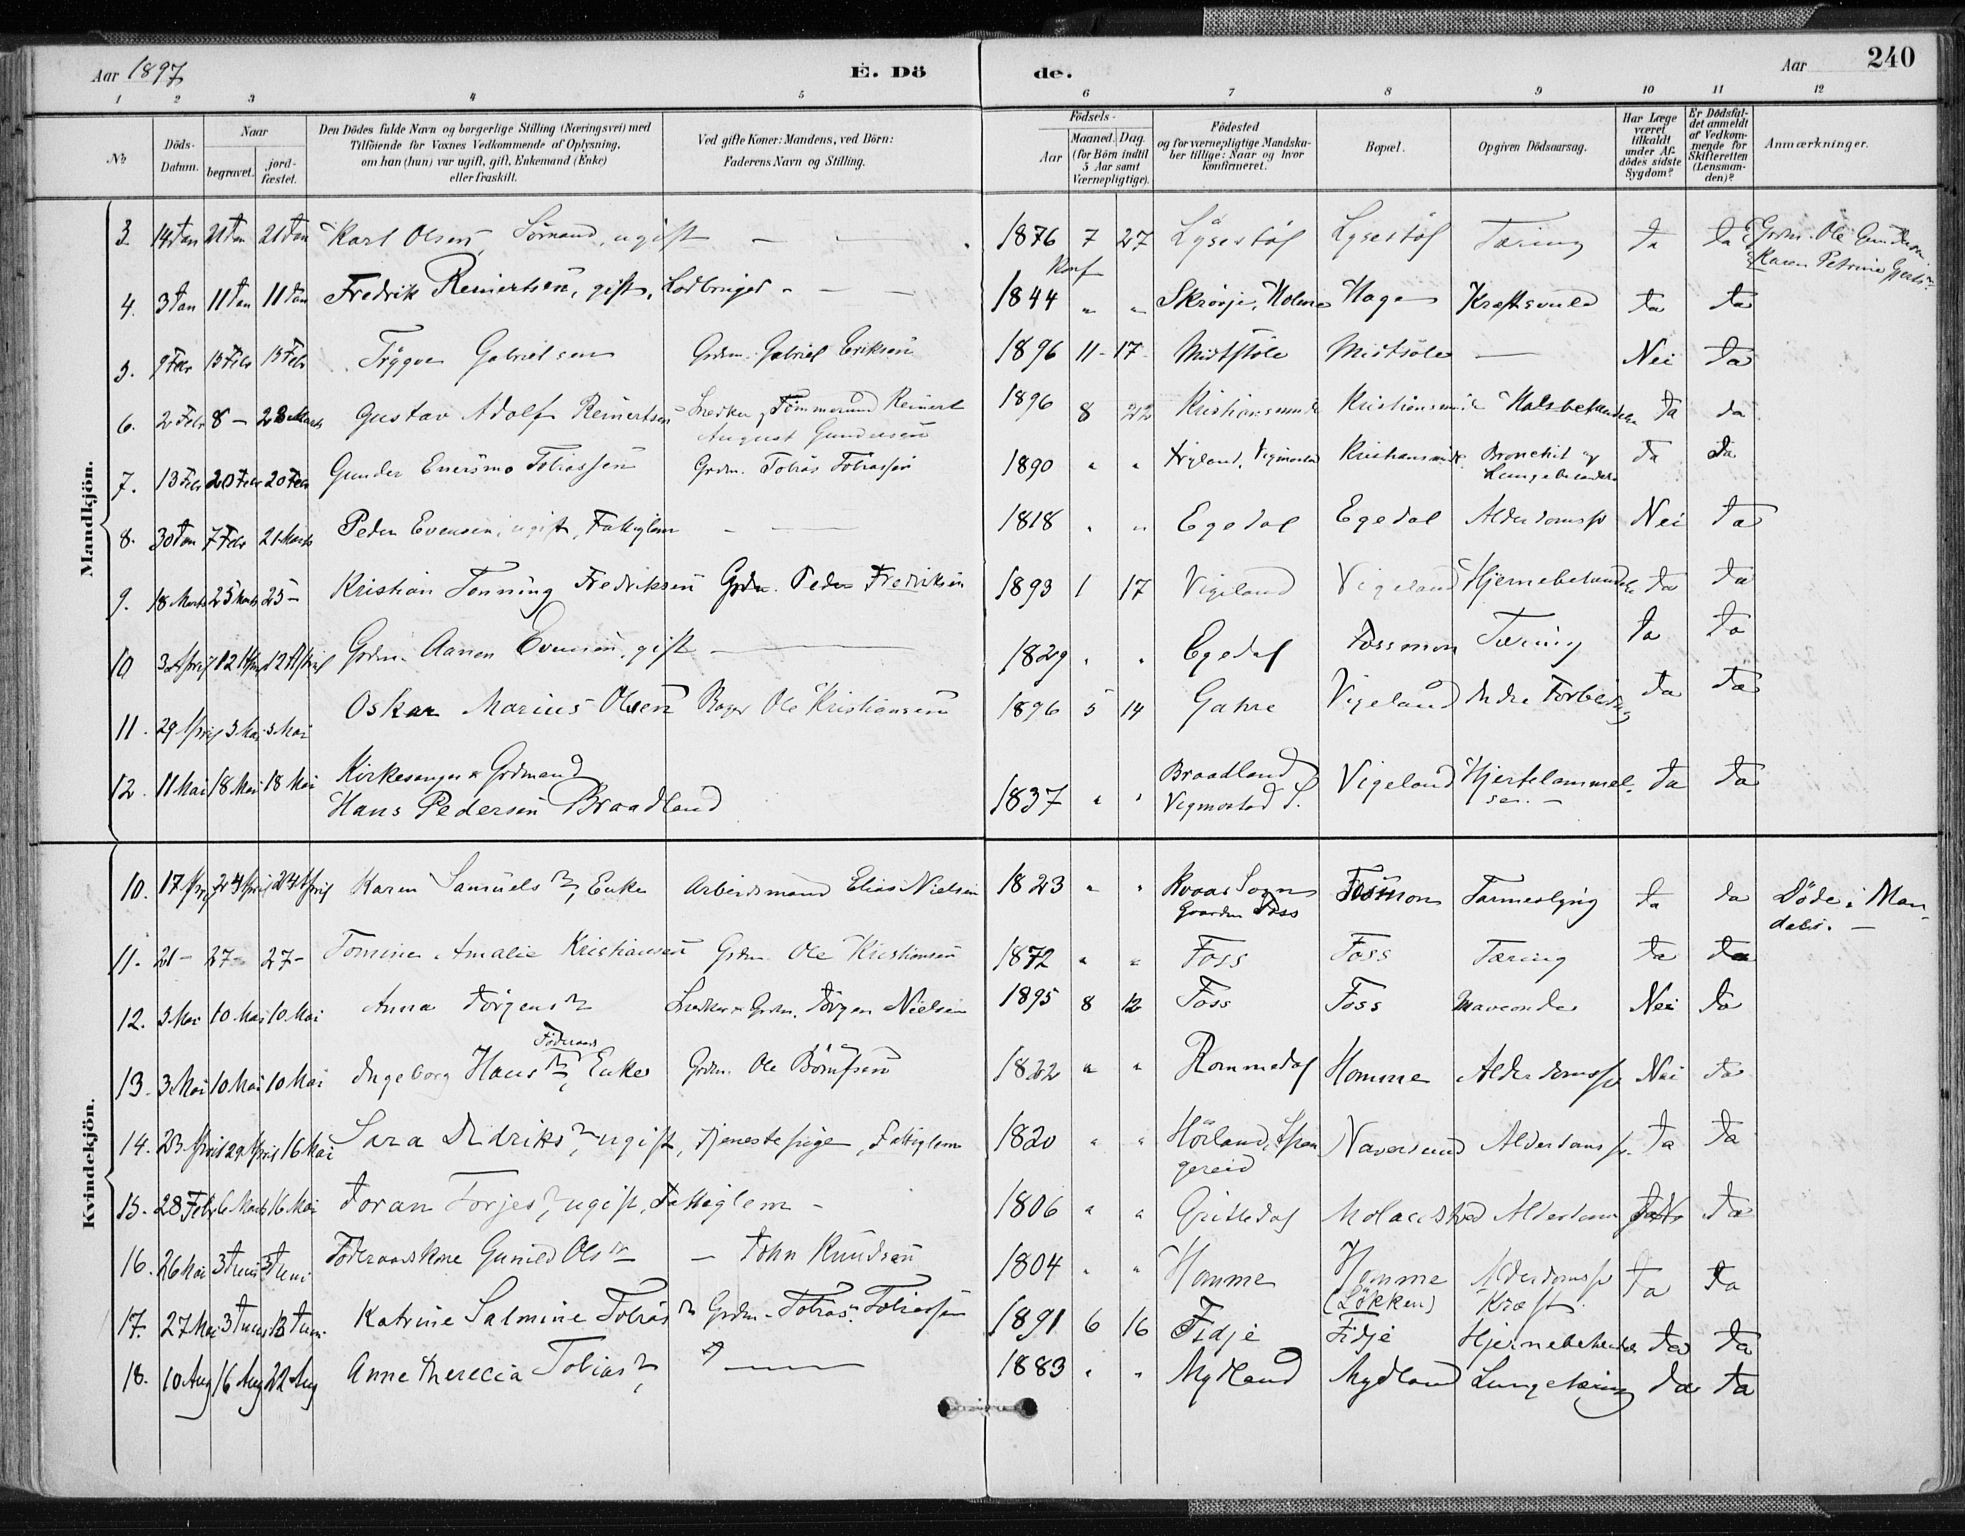 Aar 1897 E. Dö de. Aar 240
1 2 3 4 5 6 7 8 9 10 11 12
No
Döds-Datum.
Naar
begravet.
jord-fæstet.
Den Dödes fulde Navn og borgerlige Stilling (Næringsvei) med
Tilföiende for Voxnes Vedkommende af Oplysning,
om han (hun) var ugift, gift, Enkemand (Enke)
eller fraskilt.
Ved gifte Koner: Mandens, ved Börn:
Faderens Navn og Stilling.
Födsels-
Aar
Maaned. Dag.
(for Börn indtil
5 Aar samt
Værnepligtige).
Födested
og for værnepligtige Mandska-
ber tillige: Naar og hvor
konfirmeret.
Bopæl.
Opgiven Dödsaarsag.
Har Læge
været
tilkaldt
under Af-
dödes sidste
Sygdom?
Er Dödsfal-
det anmeldt
af Vedkom-
mende for
Skifteretten
(Lensman-
den)?
Anmærkninger.
Mandkjön.
3. 14 Jan 21 Jan 21 Jan Karl Olsen, Sömand, ugift — — 1876 7 27 Lysestöl Lysestöl Tæring Ja Ja Grdm. Ole Gundersen
Konf Karen Petrine
4. 3 Jan 11 Jan 11 Jan Fredrik Reinertsen, gift, Lodbruger - — — 1844 " " Skrøvje, Holme Hage Kræftsvulst Ja Ja
5. 9 Febr 13 Febr 13 Febr Trygve Gabrielsen Grdm. Gabriel Eriksen 1896 11 - 17 Midtstöle Midtstöle — Nei Ja
6. 2 Febr 8 — 28 Marts Gustav Adolf Reinertsen Snedker & Tömmermand Reinert 1896 8 22 Kristiansund Kristiansund Halsbetændelse Ja Ja
August Gundersen
7. 13 Febr 20 Febr 20 Febr Gunder Enersmo Tobiassen Grdm. Tobias Tobiassen 1890 " " Tryland, Vigmostad Kristiansund Bronchit og Ja Ja
Lungebetændelse
8. 30 Jan 7 Febr 21 Marts Peder Evensen, ugift, Fattiglem — — 1818 " " Egedal Egedal Alderdomssv Nei Ja
9. 18 Marts 25 Marts 25 — Kristian Tonning Fredriksen Grdm. Peder Fredriksen 1893 1 17 Vigeland Vigeland Hjernebetændelse Ja Ja
10 3 April 12 April 12 April Grdm. Aanen Evensen, gift — 1829 " " Egedal Fossmon Tæring Ja Ja
11. 29 April 3 Mai 3 Mai Oskar Marius Olsen Bager Ole Kristiansen 1896 5 14 Gahre Vigeland Indre Forblødning Ja Ja
12. 11 Mai 18 Mai 18 Mai Kirkesanger & Grdmand
Hans Pedersen Braadland 1837 " " Braadland
Vigmostad S. Vigeland Hjertelammel-
sen. — Ja Ja
Kvindekjön.
10. 17 April 24 April 24 April Karen Samuelsdtr, Enke Arbeidsmand Elias Nielsen 1823 " " Kvaas Sogn Fosmon Tarmeslyng Ja Ja Döde i Man-
Gaarden Foss dalen. —
11. 21 — 27 — 27 — Tomine Amalie Kristiansen Grdm. Ole Kristiansen 1872 " " Foss Foss Tæring Ja Ja
12. 3 Mai 10 Mai 10 Mai Anna Jörgensdtr Snedker & Grdm. Jörgen Nielsen 1895 8 12 Foss Foss Maveonde Nei Ja
Föderaads
13. 3 Mai 10 Mai 10 Mai Ingeborg Hansdtr, Enke Grdm. Ole Börufsen 1822 " " Rommedal Homme Alderdomssv Nei Ja
14. 23 April 29 April 16 Mai Sara Didriksdtr, ugift, Tjenestepige, Fattiglem 1820 " " Hörland, Span-
gereid Naversund Alderdomssv. Ja Ja
15. 28 Febr 6 Marts 16 Mai Joran Torjesdtr, ugift, Fattiglem — 1806 " " Gritledal Molandsted Alderdom Ja
16. 26 Mai 3 Juni 3 Juni Föderaadskone Gunild Olsdtr — John Knudsen 1804 " " Homme Homme Alderdomssv Ja Ja
(Lökken) Kræft.
17. 27 Mai 3 Juni 13 Juni Katrine Salmine Tobiasdtr Grdm. Tobias Tobiassen 1891 6 16 Fidje Fidje Hjernebetændelse Ja Ja
18. 10 Aug 16 Aug 22 Aug Anne Therecia Tobiasdtr, — 1883 " " Mydland Mydland Lungetæring Ja Ja